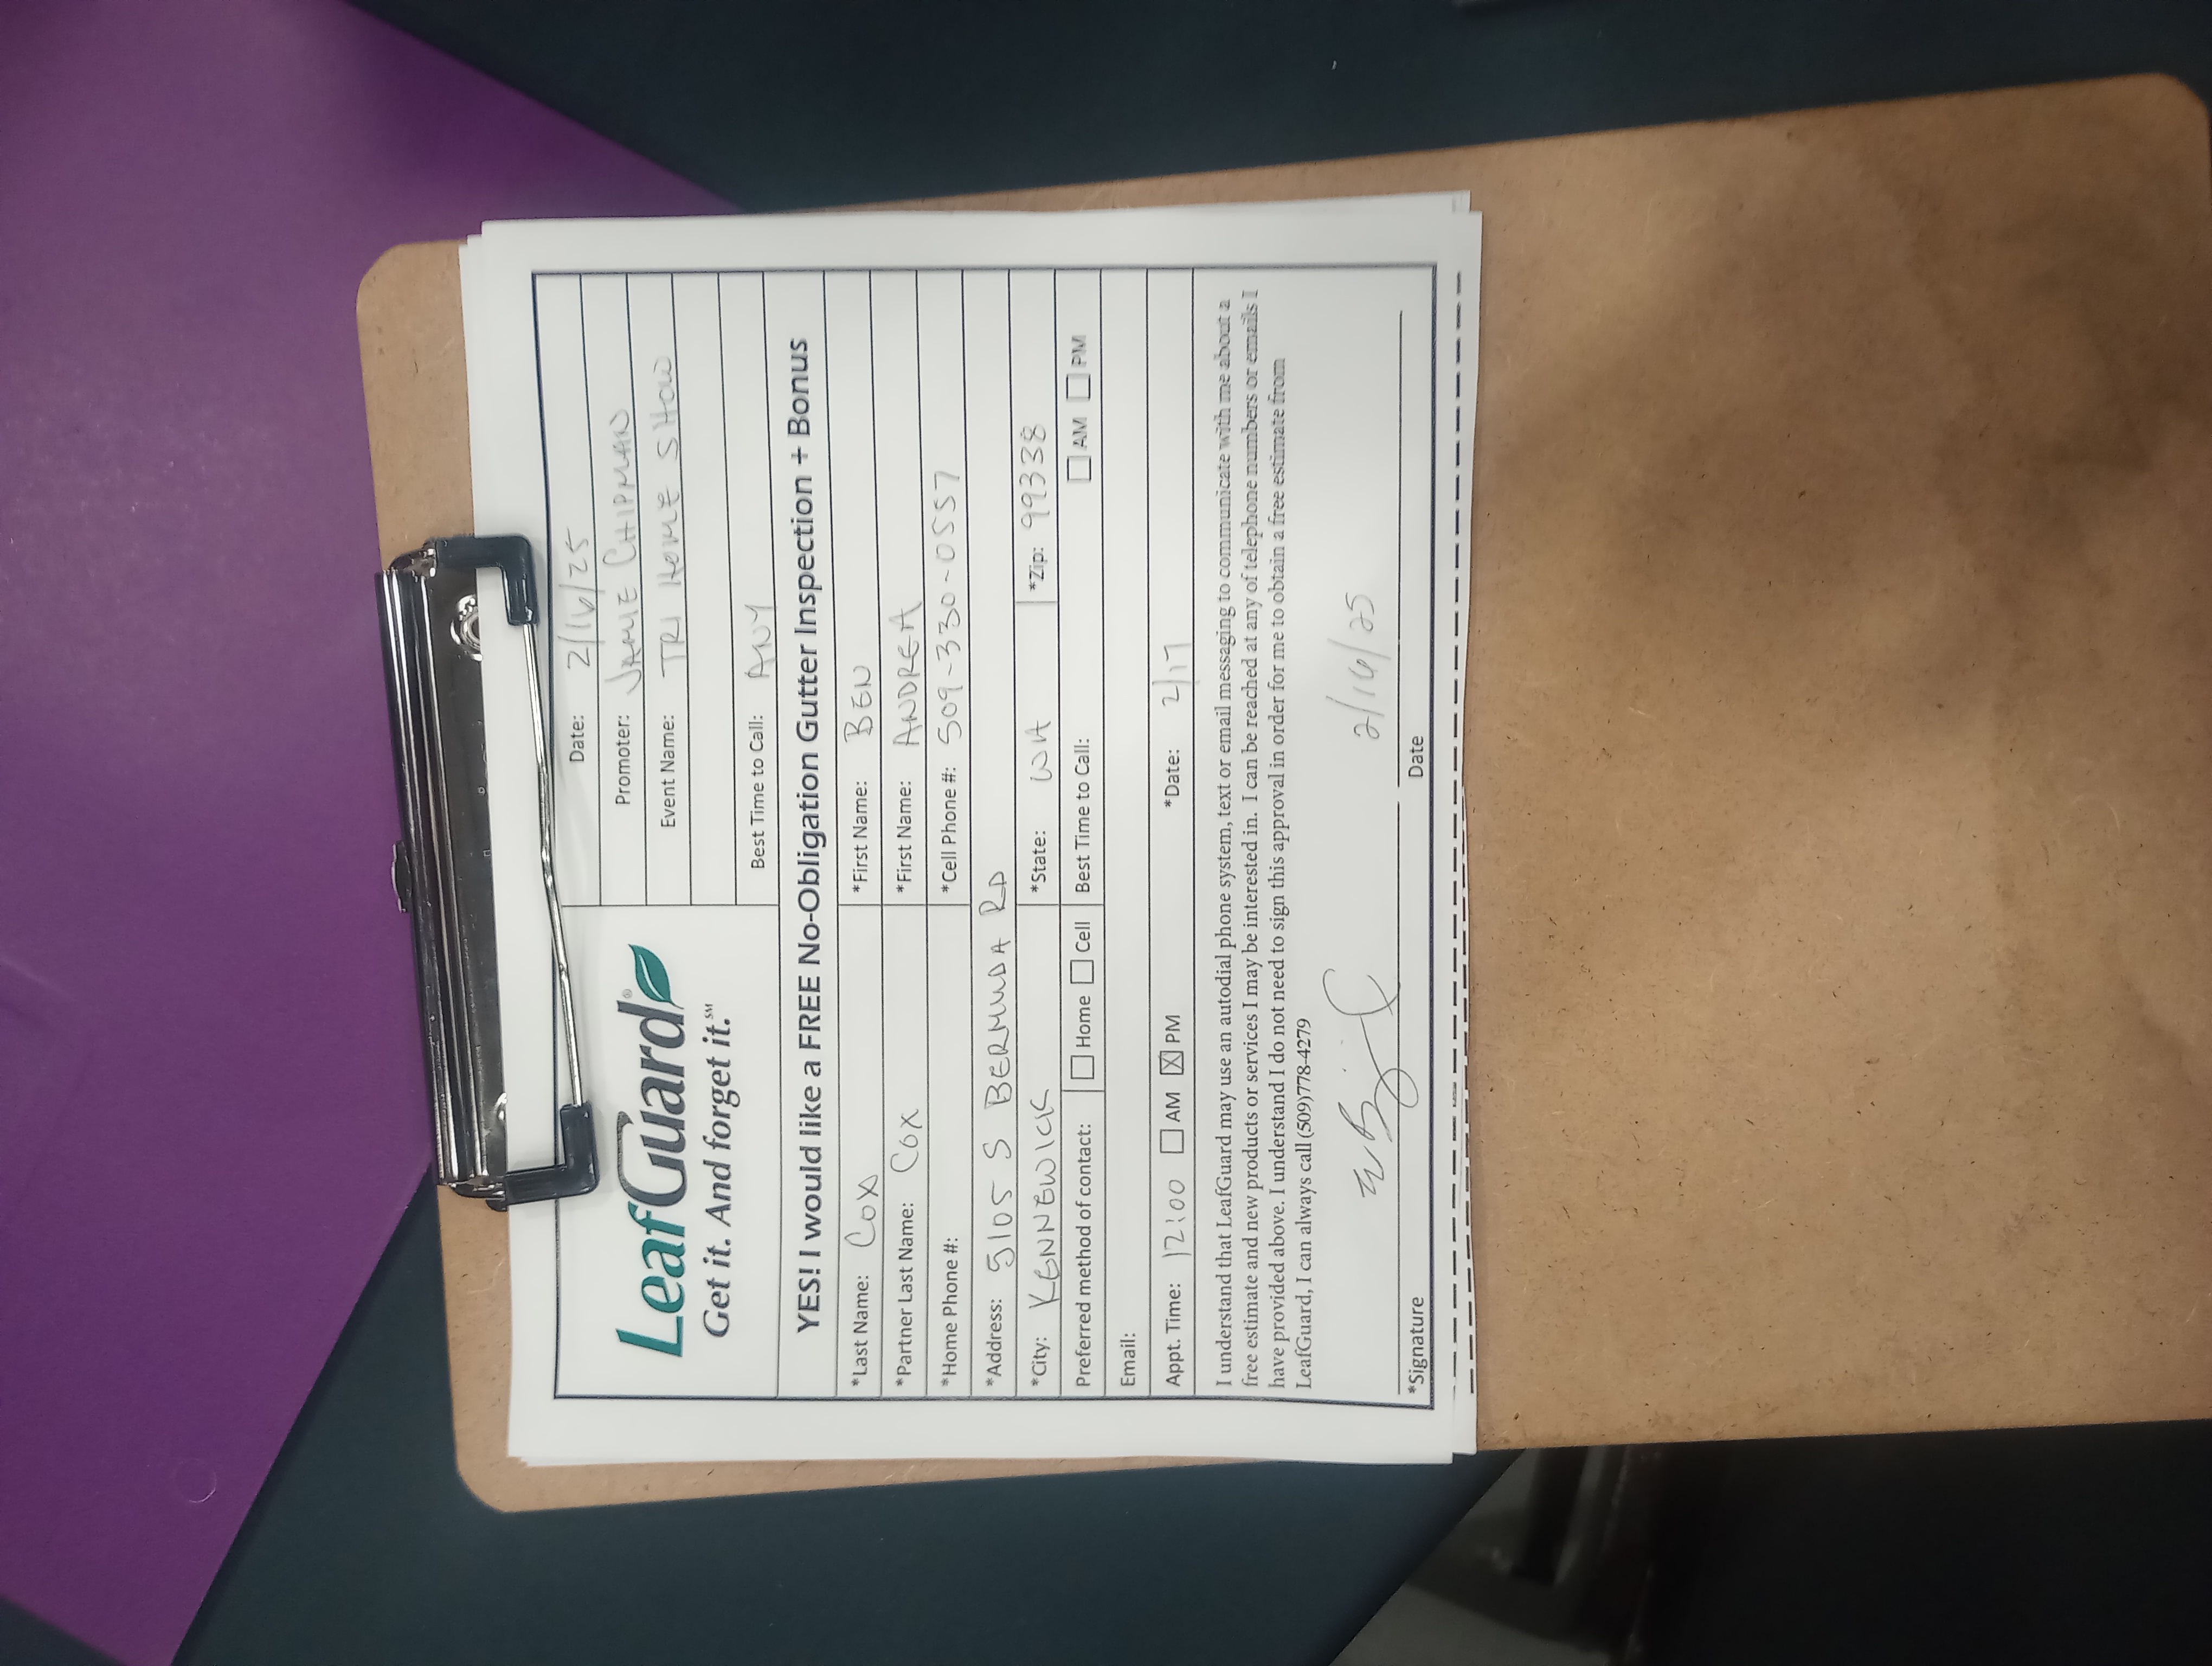 Date: 2/16/25
Promoter: JAMIE CHIPMAN
Event Name: TRI HOME SHOW
LeafGuard®
Get it. And forget it.℠
Best Time to Call: ANY
YES! I would like a FREE No-Obligation Gutter Inspection + Bonus
*Last Name: COX *First Name: BEN
*Partner Last Name: COX *First Name: ANDREA
*Home Phone #: *Cell Phone #: 509-330-0557
*Address: 5105 S BERMUDA RD
*City: KENNEWICK *State: WA *Zip: 99338
Preferred method of contact: ☐ Home ☐ Cell Best Time to Call: ☐ AM ☐ PM
Email:
Appt. Time: 12:00 ☐ AM ☒ PM *Date: 2/17
I understand that LeafGuard may use an autodial phone system, text or email messaging to communicate with me about a
free estimate and new products or services I may be interested in. I can be reached at any of telephone numbers or emails I
have provided above. I understand I do not need to sign this approval in order for me to obtain a free estimate from
LeafGuard, I can always call (509)778-4279
2/16/25
*Signature Date